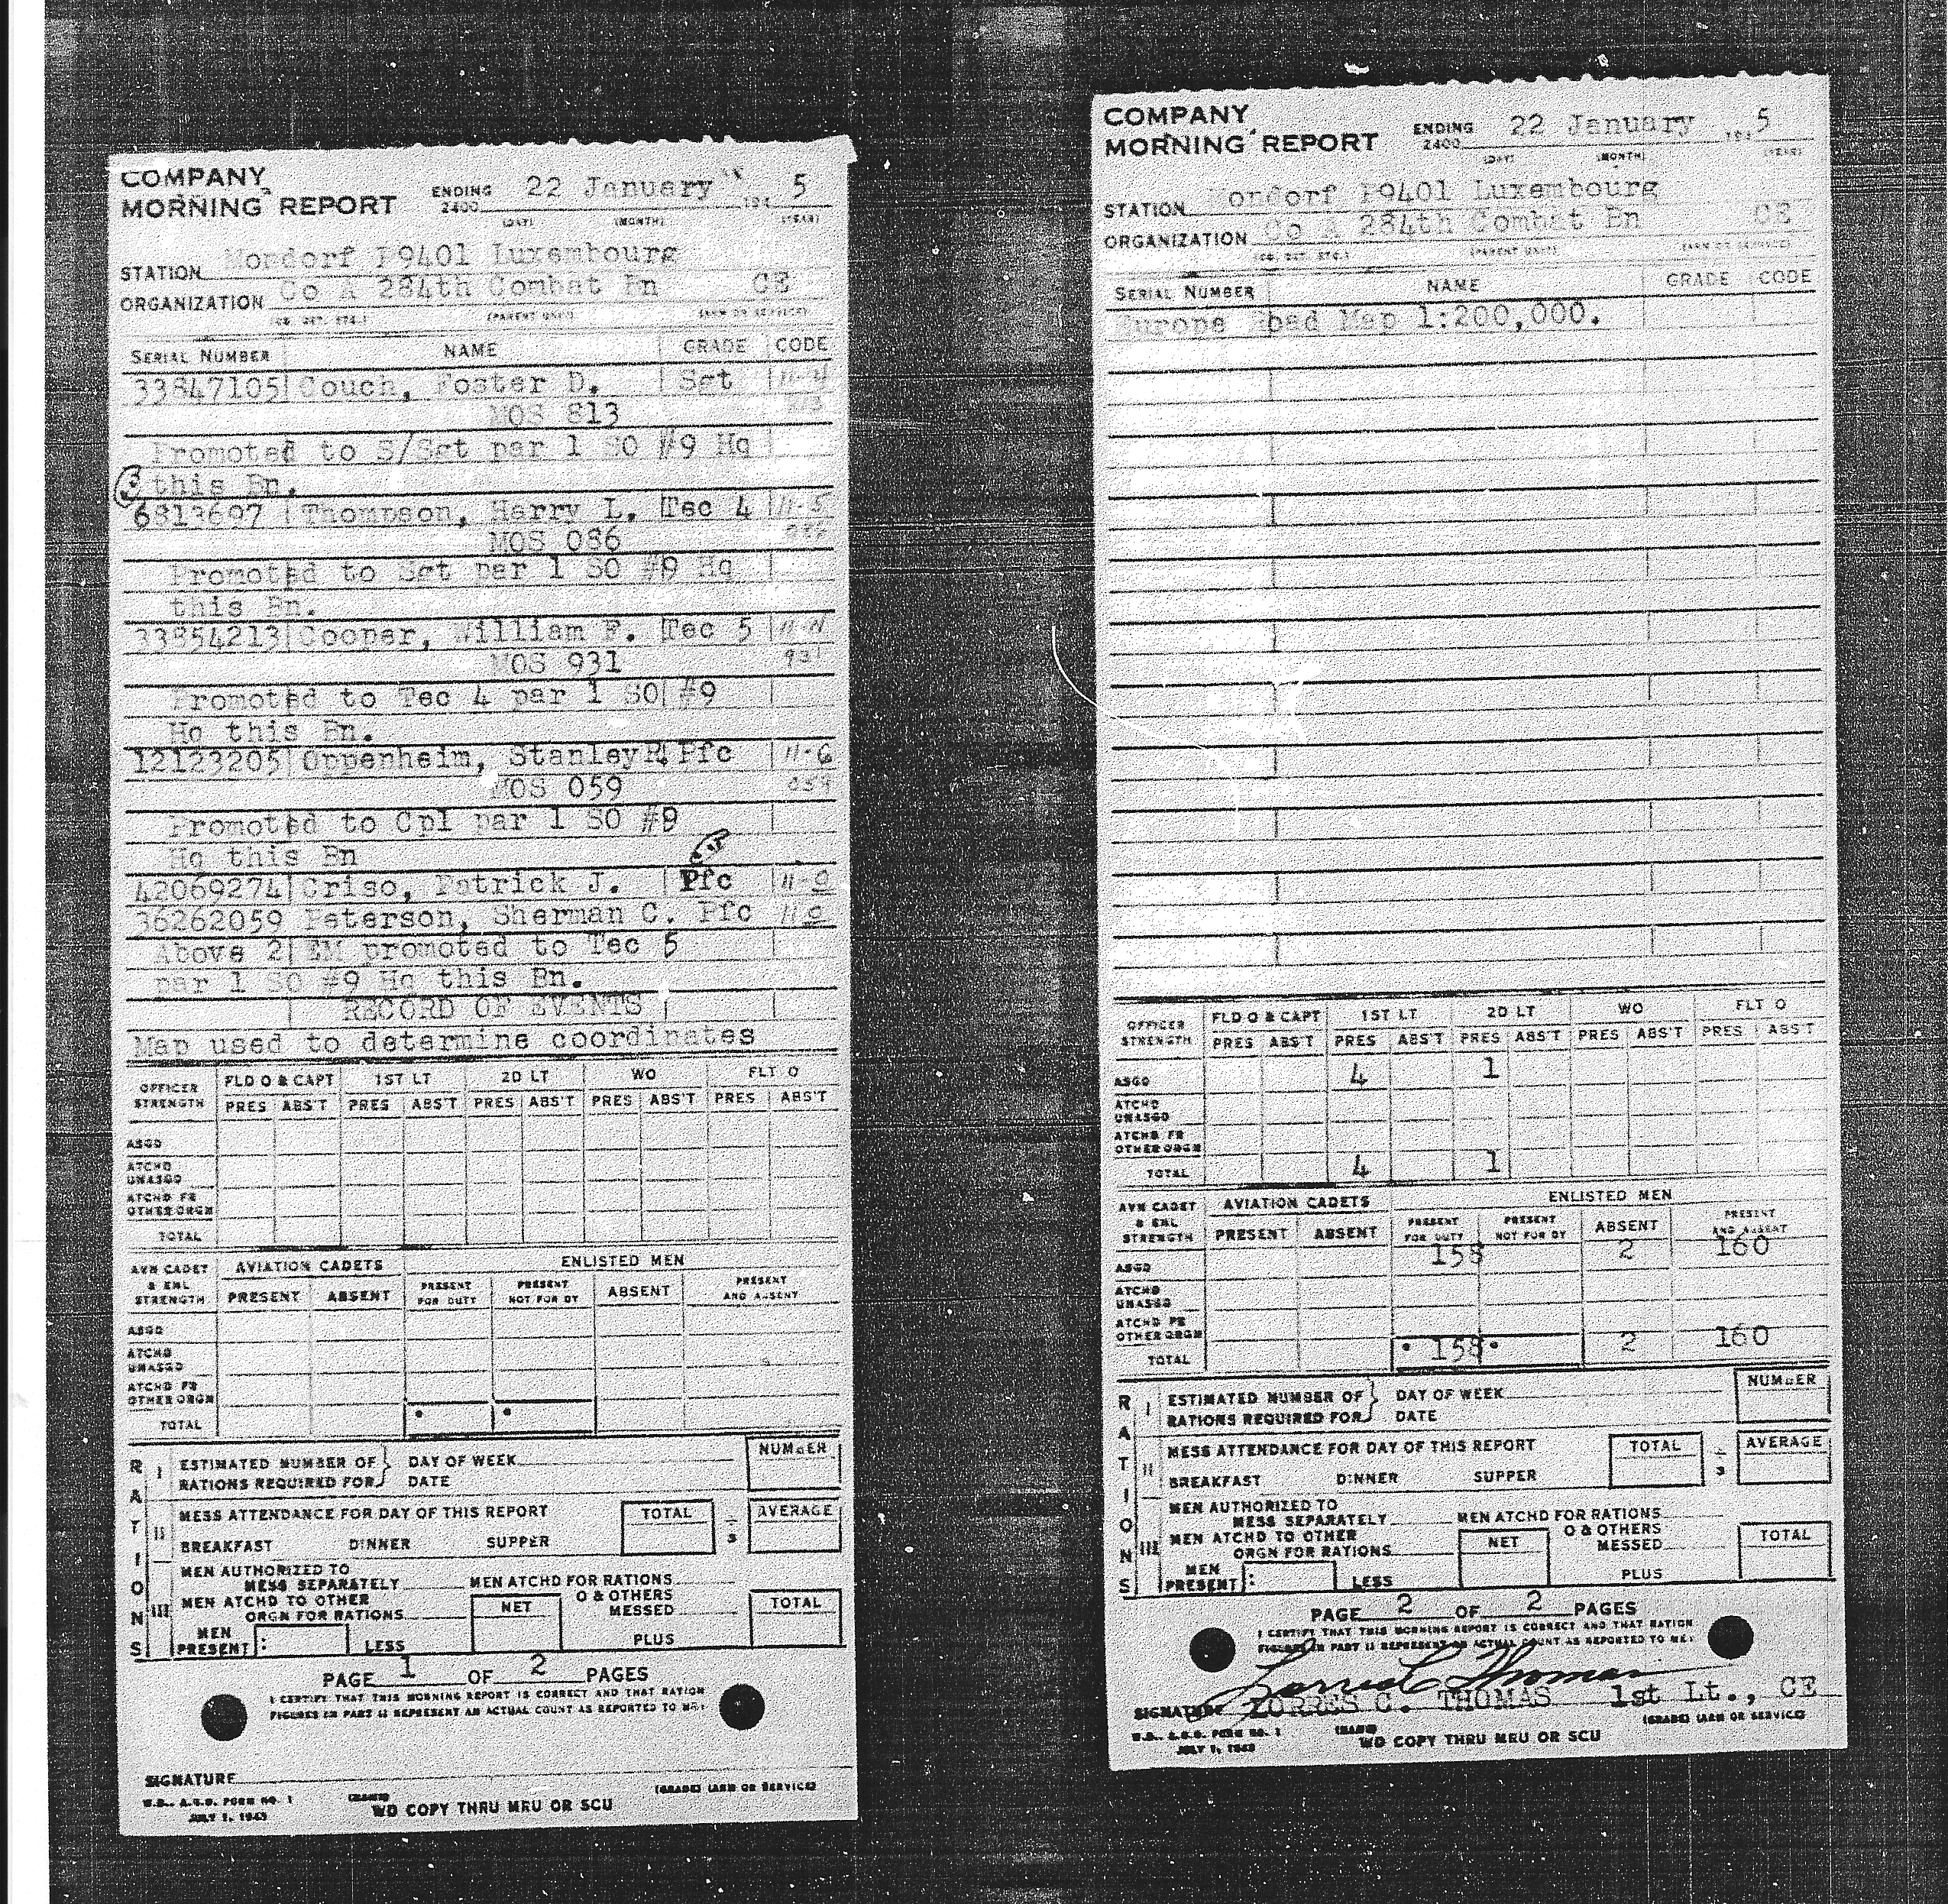 COMPANY
MORNING REPORT ENDING 2400 22 January 194 5
(DAY) (MONTH) (YEAR)
STATION Mondorf P9401 Luxembourg
ORGANIZATION Co A 284th Combat Bn CE
(CO. DET. ETC.) (PARENT UNIT) (ARM OR SERVICE)
SERIAL NUMBER NAME GRADE CODE
33847105 Couch, Foster D. Sgt 11-4
MOS 813 813
Promoted to S/Sgt par 1 SO #9 Hq
3 this Bn.
6813697 Thompson, Harry L. Tec 4 11-5
MOS 086 086
Promoted to Sgt par 1 SO #9 Hq
this Bn.
33854213 Cooper, William F. Tec 5 11-4
MOS 931 931
Promoted to Tec 4 par 1 SO #9
Hq this Bn.
12123205 Oppenheim, Stanley R. Pfc 11-6
MOS 059 059
Promoted to Cpl par 1 SO #9
Hq this Bn
42069274 Criso, Patrick J. Pfc 11-0
36262059 Peterson, Sherman C. Pfc 11 0
Above 2 EM promoted to Tec 5
par 1 SO #9 Hq this Bn.
RECORD OF EVENTS
Map used to determine coordinates
OFFICER STRENGTH FLD O & CAPT 1ST LT 2D LT WO FLT O
PRES ABS'T PRES ABS'T PRES ABS'T PRES ABS'T PRES ABS'T
ASGD
ATCHD UNASGD
ATCHD FR OTHER ORGN
TOTAL
AVN CADET & ENL STRENGTH AVIATION CADETS ENLISTED MEN
PRESENT ABSENT PRESENT FOR DUTY PRESENT NOT FOR DY ABSENT PRESENT AND ABSENT
ASGD
ATCHD UNASGD
ATCHD FR OTHER ORGN
TOTAL
RATIONS
I ESTIMATED NUMBER OF RATIONS REQUIRED FOR } DAY OF WEEK NUMBER
DATE
II MESS ATTENDANCE FOR DAY OF THIS REPORT TOTAL ÷ 3 AVERAGE
BREAKFAST DINNER SUPPER
III MEN AUTHORIZED TO MESS SEPARATELY MEN ATCHD FOR RATIONS
MEN ATCHD TO OTHER ORGN FOR RATIONS NET O & OTHERS MESSED TOTAL
MEN PRESENT: LESS PLUS
PAGE 1 OF 2 PAGES
I CERTIFY THAT THIS MORNING REPORT IS CORRECT AND THAT RATION
FIGURES IN PART II REPRESENT AN ACTUAL COUNT AS REPORTED TO ME:
SIGNATURE
(NAME) (GRADE) (ARM OR SERVICE)
W.D., A.G.O. FORM NO. 1
JULY 1, 1943
WD COPY THRU MRU OR SCU
COMPANY
MORNING REPORT ENDING 2400 22 January 194 5
(DAY) (MONTH) (YEAR)
STATION Mondorf P9401 Luxembourg
ORGANIZATION Co A 284th Combat Bn CE
(CO. DET. ETC.) (PARENT UNIT) (ARM OR SERVICE)
SERIAL NUMBER NAME GRADE CODE
Europe Road Map 1:200,000.
OFFICER STRENGTH FLD O & CAPT 1ST LT 2D LT WO FLT O
PRES ABS'T PRES ABS'T PRES ABS'T PRES ABS'T PRES ABS'T
ASGD 4 1
ATCHD UNASGD
ATCHD FR OTHER ORGN
TOTAL 4 1
AVN CADET & ENL STRENGTH AVIATION CADETS ENLISTED MEN
PRESENT ABSENT PRESENT FOR DUTY PRESENT NOT FOR DY ABSENT PRESENT AND ABSENT
ASGD 158 2 160
ATCHD UNASGD
ATCHD FR OTHER ORGN
TOTAL 158 2 160
RATIONS
I ESTIMATED NUMBER OF RATIONS REQUIRED FOR } DAY OF WEEK NUMBER
DATE
II MESS ATTENDANCE FOR DAY OF THIS REPORT TOTAL ÷ 3 AVERAGE
BREAKFAST DINNER SUPPER
III MEN AUTHORIZED TO MESS SEPARATELY MEN ATCHD FOR RATIONS
MEN ATCHD TO OTHER ORGN FOR RATIONS NET O & OTHERS MESSED TOTAL
MEN PRESENT: LESS PLUS
PAGE 2 OF 2 PAGES
I CERTIFY THAT THIS MORNING REPORT IS CORRECT AND THAT RATION
FIGURES IN PART II REPRESENT AN ACTUAL COUNT AS REPORTED TO ME:
SIGNATURE LORRES C. THOMAS 1st Lt., CE
(NAME) (GRADE) (ARM OR SERVICE)
W.D., A.G.O. FORM NO. 1
JULY 1, 1943
WD COPY THRU MRU OR SCU